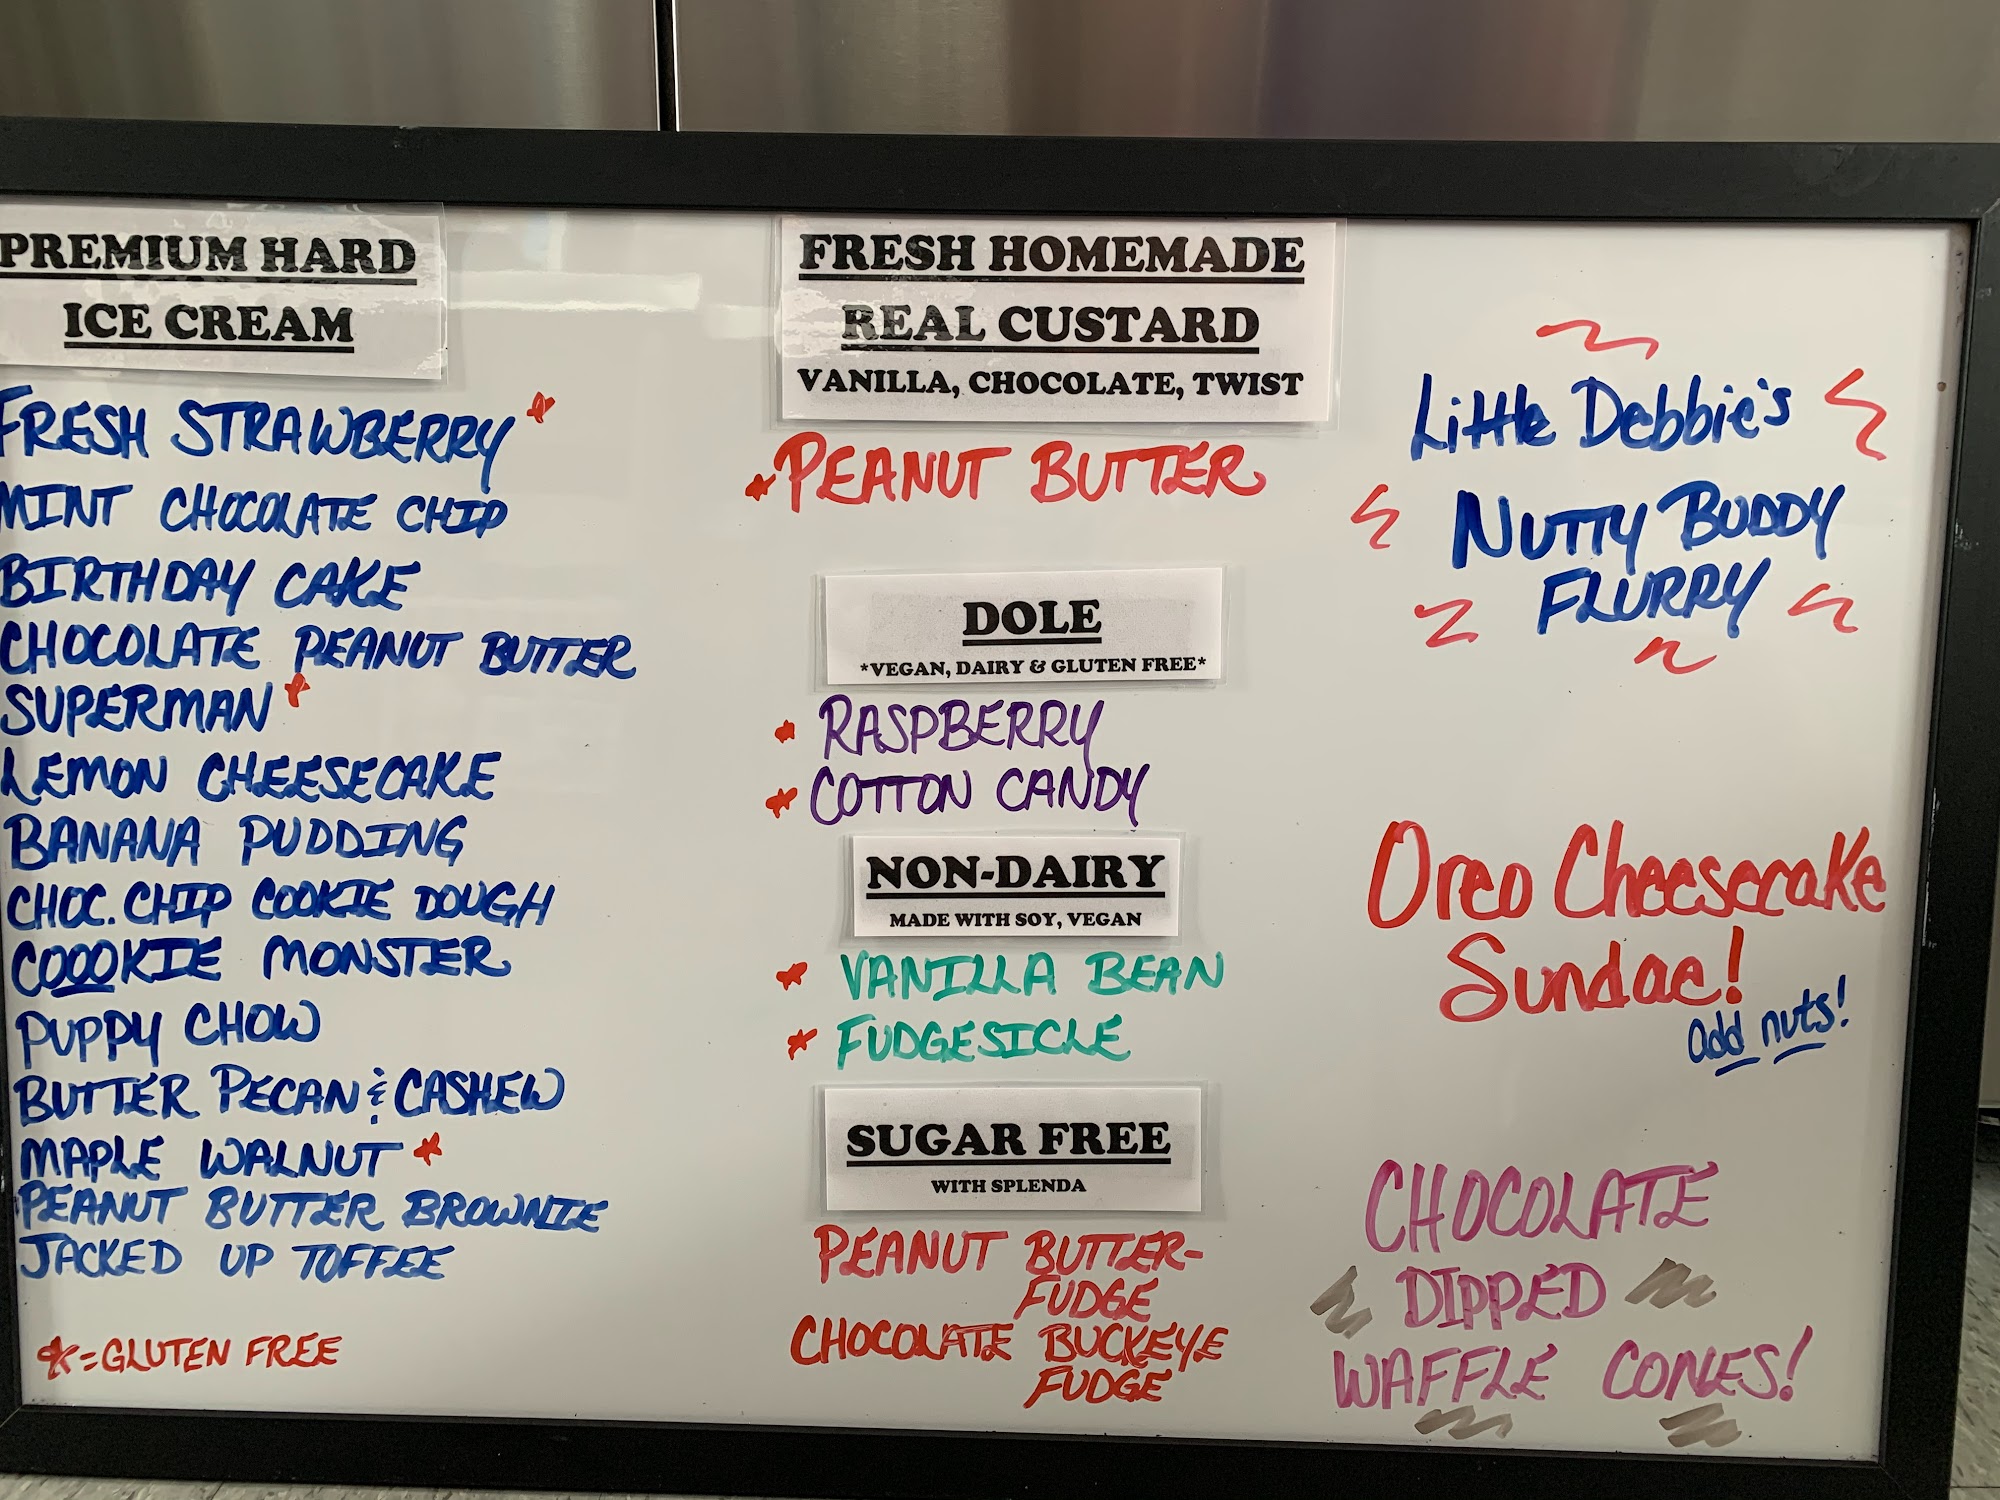 PREMIUM HARD
ICE CREAM
FRESH STRAWBERRY*
MINT CHOCOLATE CHIP
BIRTHDAY CAKE
CHOCOLATE PEANUT BUTTER
SUPERMAN*
LEMON CHEESECAKE
BANANA PUDDING
CHOC. CHIP COOKIE DOUGH
COOOKIE MONSTER
PUPPY CHOW
BUTTER PECAN & CASHEW
MAPLE WALNUT*
PEANUT BUTTER BROWNIE
JACKED UP TOFFEE
*=GLUTEN FREE
FRESH HOMEMADE
REAL CUSTARD
VANILLA, CHOCOLATE, TWIST
*PEANUT BUTTER
DOLE
*VEGAN, DAIRY & GLUTEN FREE*
* RASPBERRY
* COTTON CANDY
NON-DAIRY
MADE WITH SOY, VEGAN
* VANILLA BEAN
* FUDGESICLE
SUGAR FREE
WITH SPLENDA
PEANUT BUTTER-
FUDGE
CHOCOLATE BUCKEYE
FUDGE
Little Debbie's
NUTTY BUDDY
FLURRY
Oreo Cheesecake
Sundae!
add nuts!
CHOCOLATE
DIPPED
WAFFLE CONES!